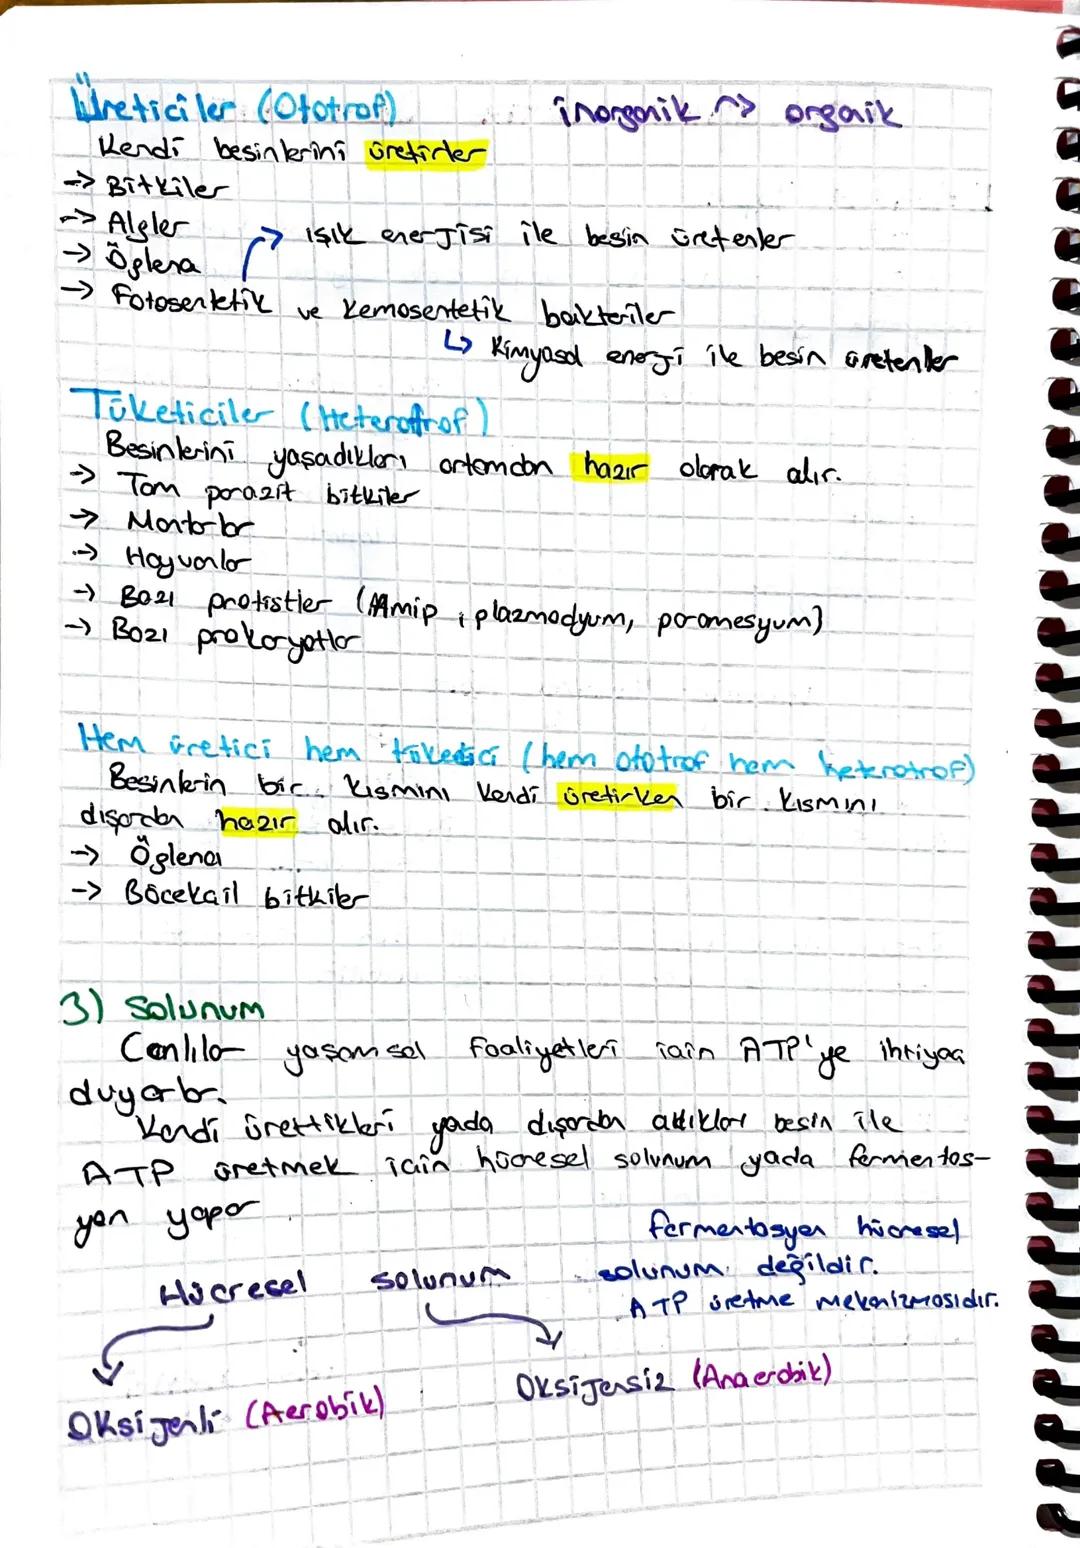 Üreticiler (Ototrof) inorganik → orgaik
Kendi besinlerini üretirler
→ Bitkiler
→ Algler
→ ışık enerjisi ile besin üretenler
→ Öglena
→ Fotosentetik ve Kemosentetik bakteriler
↳ Kimyasal enerji ile besin üretenler
Tüketiciler (Heterotrof)
Besinlerini yaşadıkları ortamdan hazır olarak alır.
→ Tam parazit bitkiler
→ Mantarlar
→ Hayvanlar
→ Bazı protistler (Amip, plazmodyum, paramesyum)
→ Bazı prokaryotlar
Hem üretici hem tüketici (hem ototrof hem heterotrof)
Besinlerin bir kısmını kendi üretirken bir kısmını
dışardan hazır alır.
→ Öglena
→ Böcekçil bitkiler
3) Solunum
Canlılar yaşamsal faaliyetleri için ATP'ye ihtiyaç
duyarlar.
Kendi ürettikleri yada dışardan aldıkları besin ile
ATP üretmek için hücresel solunum yada fermentas-
yon yapar
fermentasyon hücresel
solunum değildir.
ATP üretme mekanizmasıdır.
Hücresel solunum
Oksijenli (Aerobik)
Oksijensiz (Anaerobik)